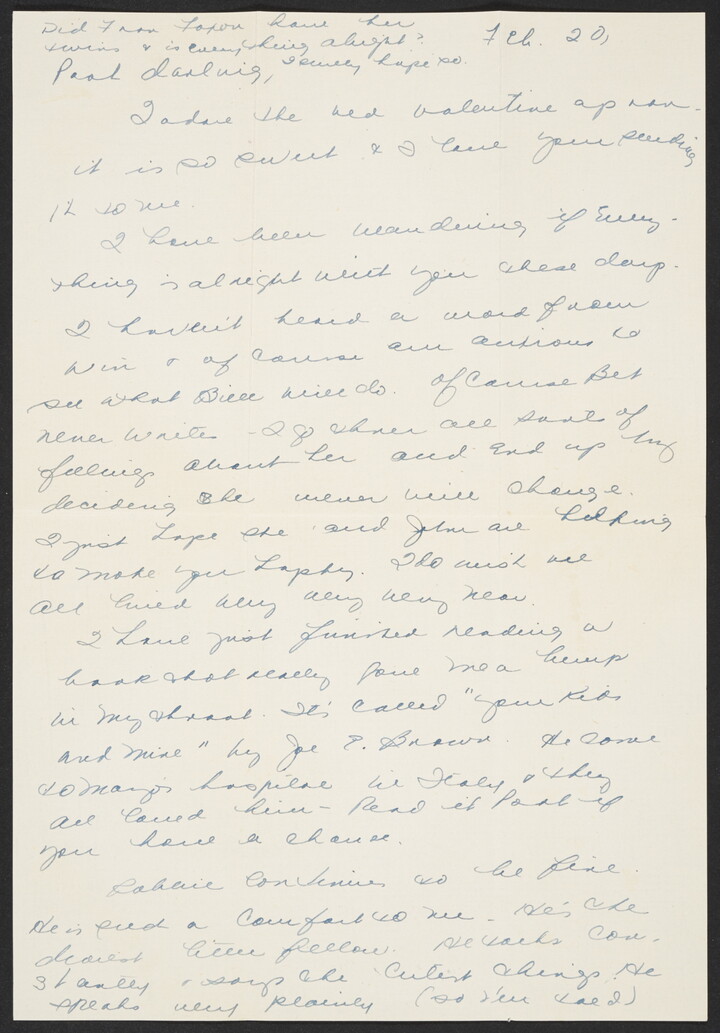 Did Fran Foxon have her
twins & is everything alright?
I surely hope so.
Feb. 20,
Poot darling,
I adore the red valentine apron -
it is so sweet & I love your sending
it to me.
I have been wondering if every-
thing is alright with you these days.
I haven't heard a word from
Win & of course am anxious to
see what Bill will do. Of course Bet
never writes - I go thru all sorts of
feelings about her and end up by
deciding she never will change.
I just hope she and John are helping
to make you happy. I do wish we
all lived very very very near.
I have just finished reading a
book that really gave me a lump
in my throat. It's called "Your Kids
and Mine" by Joe E. Brown. He came
to hospital in Italy & they
all loved him - Read it Poot if
you have a chance.
Robbie continues to be fine.
He is such a comfort to me - He's the
dearest little fellow. He talks con-
stantly & says the cutest things. He
speaks very plainly (so I'm told)